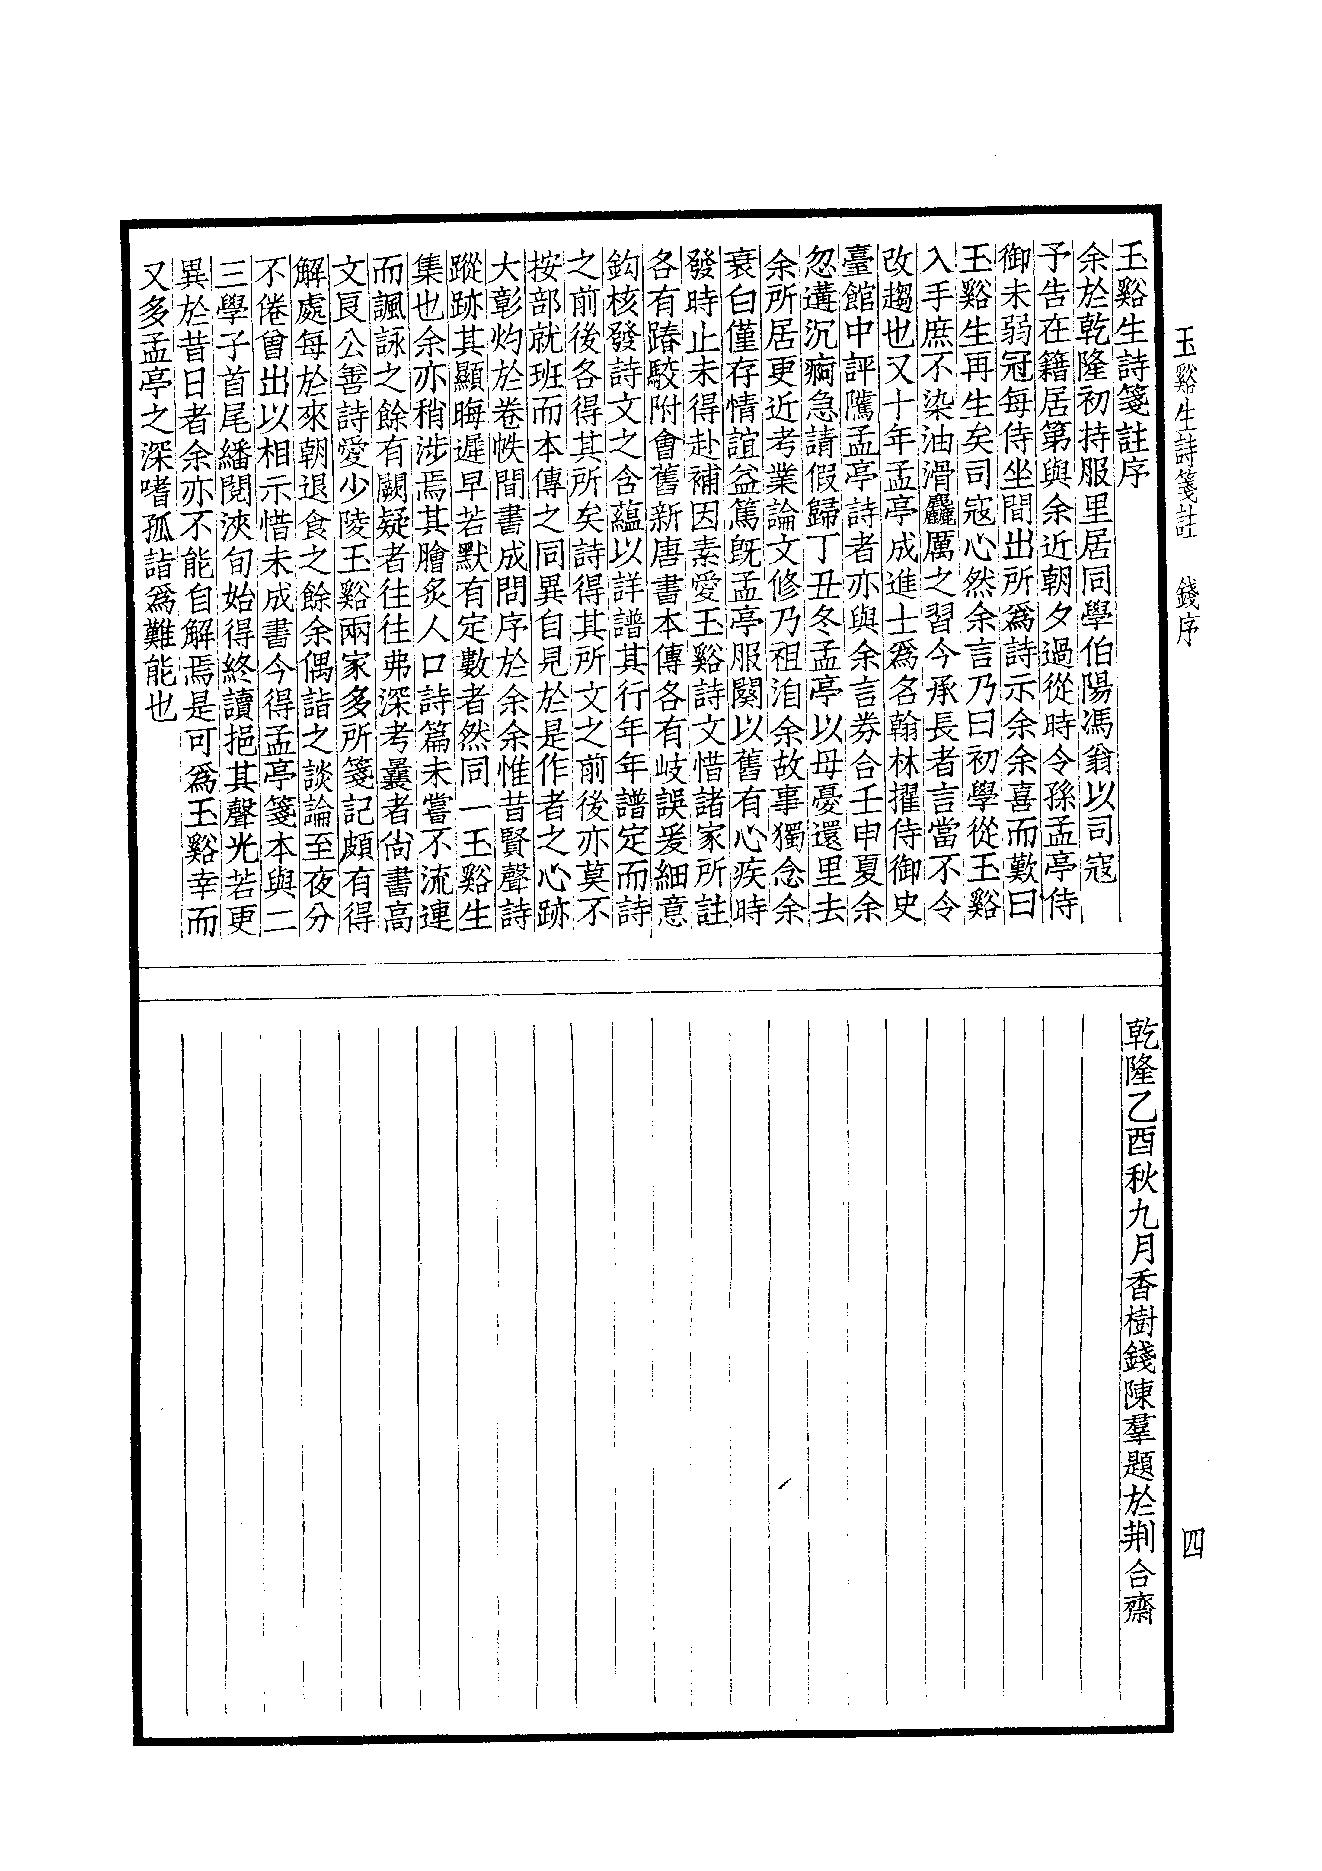 玉谿生詩箋註　錢序
四
玉谿生詩箋註序
余於乾隆初持服里居同學伯陽馮翁以司寇
予告在籍居第與余近朝夕過從時令孫孟亭侍
御未弱冠每侍坐間出所爲詩示余余喜而歎曰
玉谿生再生矣司寇心然余言乃曰初學從玉谿
入手庶不染油滑麤厲之習今承長者言當不令
改趨也又十年孟亭成進士爲名翰林擢侍御史
臺館中評騭孟亭詩者亦與余言券合壬申夏余
忽遘沉痾急請假歸丁丑冬孟亭以母憂還里去
余所居更近考業論文修乃祖洎余故事獨念余
衰白僅存情誼益篤旣孟亭服闋以舊有心疾時
發時止未得赴補因素愛玉谿詩文惜諸家所註
各有踳駮附會舊新唐書本傳各有岐誤爰細意
鈎核發詩文之含蘊以詳譜其行年年譜定而詩
之前後各得其所矣詩得其所文之前後亦莫不
按部就班而本傳之同異自見於是作者之心跡
大彰灼於卷帙間書成問序於余余惟昔賢聲詩
蹤跡其顯晦遲早若默有定數者然同一玉谿生
集也余亦稍涉焉其膾炙人口詩篇未嘗不流連
而諷詠之餘有闕疑者往往弗深考曩者尙書高
文良公善詩愛少陵玉谿兩家多所箋記頗有得
解處每於來朝退食之餘余偶詣之談論至夜分
不倦曾出以相示惜未成書今得孟亭箋本與二
三學子首尾繙閱浹旬始得終讀挹其聲光若更
異於昔日者余亦不能自解焉是可爲玉谿幸而
又多孟亭之深嗜孤詣爲難能也
乾隆乙酉秋九月香樹錢陳羣題於荆合齋